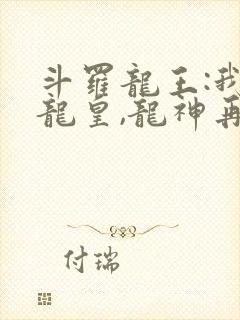 斗羅龍王:我
龍皇,龍神再
付瑞